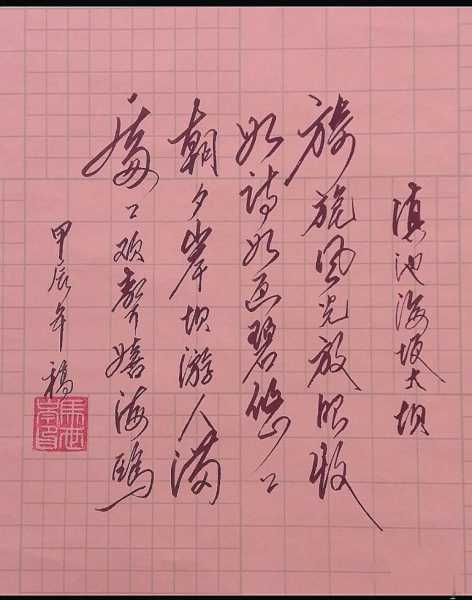 滇池海埂大坝
旖旎风光放眼收
如诗如画碧悠々
朝夕岸坝游人满
處々欢聲嬉海鸥
甲辰年稿